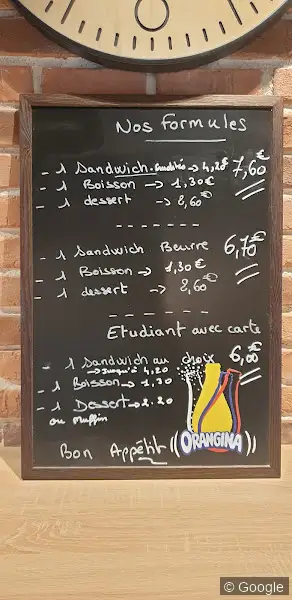 Nos formules
- 1 Sandwich. Crudités → 4,20€ 7,60€
- 1 Boisson → 1,30€
- 1 dessert → 2,60€
- 1 Sandwich Beurre 6,70€
- 1 Boisson → 1,30€
- 1 dessert → 2,60€
Etudiant avec carte
- 1 Sandwich au choix 6,00€
→ jusqu'à 4,20
- 1 Boisson → 1,30
- 1 Dessert → 2.20
ou Muffin
ORANGINA
Bon Appétit
© Google